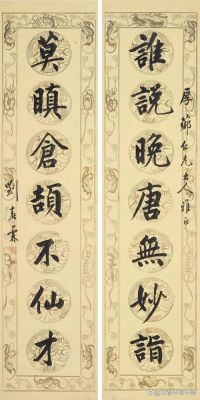 厚仁兄大人雅正
誰說晚唐無妙詣
莫瞋倉頡不仙才
劉春霖